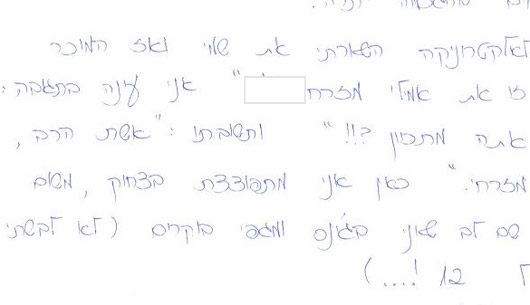 לאלקטרוניקה השארתי את שמי ואז המוכר
" אני עונה בתגובה :
אתה מתכוון ?!! " ותשובתו : "אשת הרב ,
מזרחי. " כאן אני מתפוצצת בצחוק , משום
שם לב שאני בג'ינס ומגפי בוקרים ( לא לבשתי
12 !....)